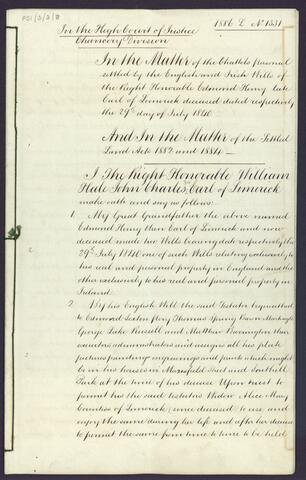 P51/3/3/8
In the High Court of Justice
Chancery Division
1886 L. No. 1331
In the Matter of the Chattels personal
settled by the English and Irish Wills of
the Right Honorable Edmond Henry late
Earl of Limerick deceased dated respectively
the 29th day of July 1840.
And In the Matter of the Settled
Land Acts 1882 and 1884 —
I The Right Honorable William
Hale John Charles, Earl of Limerick
make oath and say as follows:
1. My Great Grandfather the above named
Edmond Henry then Earl of Limerick and now
deceased made two Wills bearing date respectively the
29th July 1840 one of such Wills relating exclusively to
his real and personal property in England and the
other exclusively to his real and personal property in
Ireland.
2. By his English Will the said Testator bequeathed
to Edmond Sexten Pery Thomas Spring Baron Monteagle
George Lake Russell and Matthew Barrington their
executors administrators and assigns all his plate
pictures paintings engravings and prints which might
be in his houses in Mansfield Street and Southill
Park at the time of his decease Upon trust to
permit his the said testators Widow Alice Mary
Countess of Limerick (since deceased) to use and
enjoy the same during her life and after her decease
to permit the same from time to time to be held